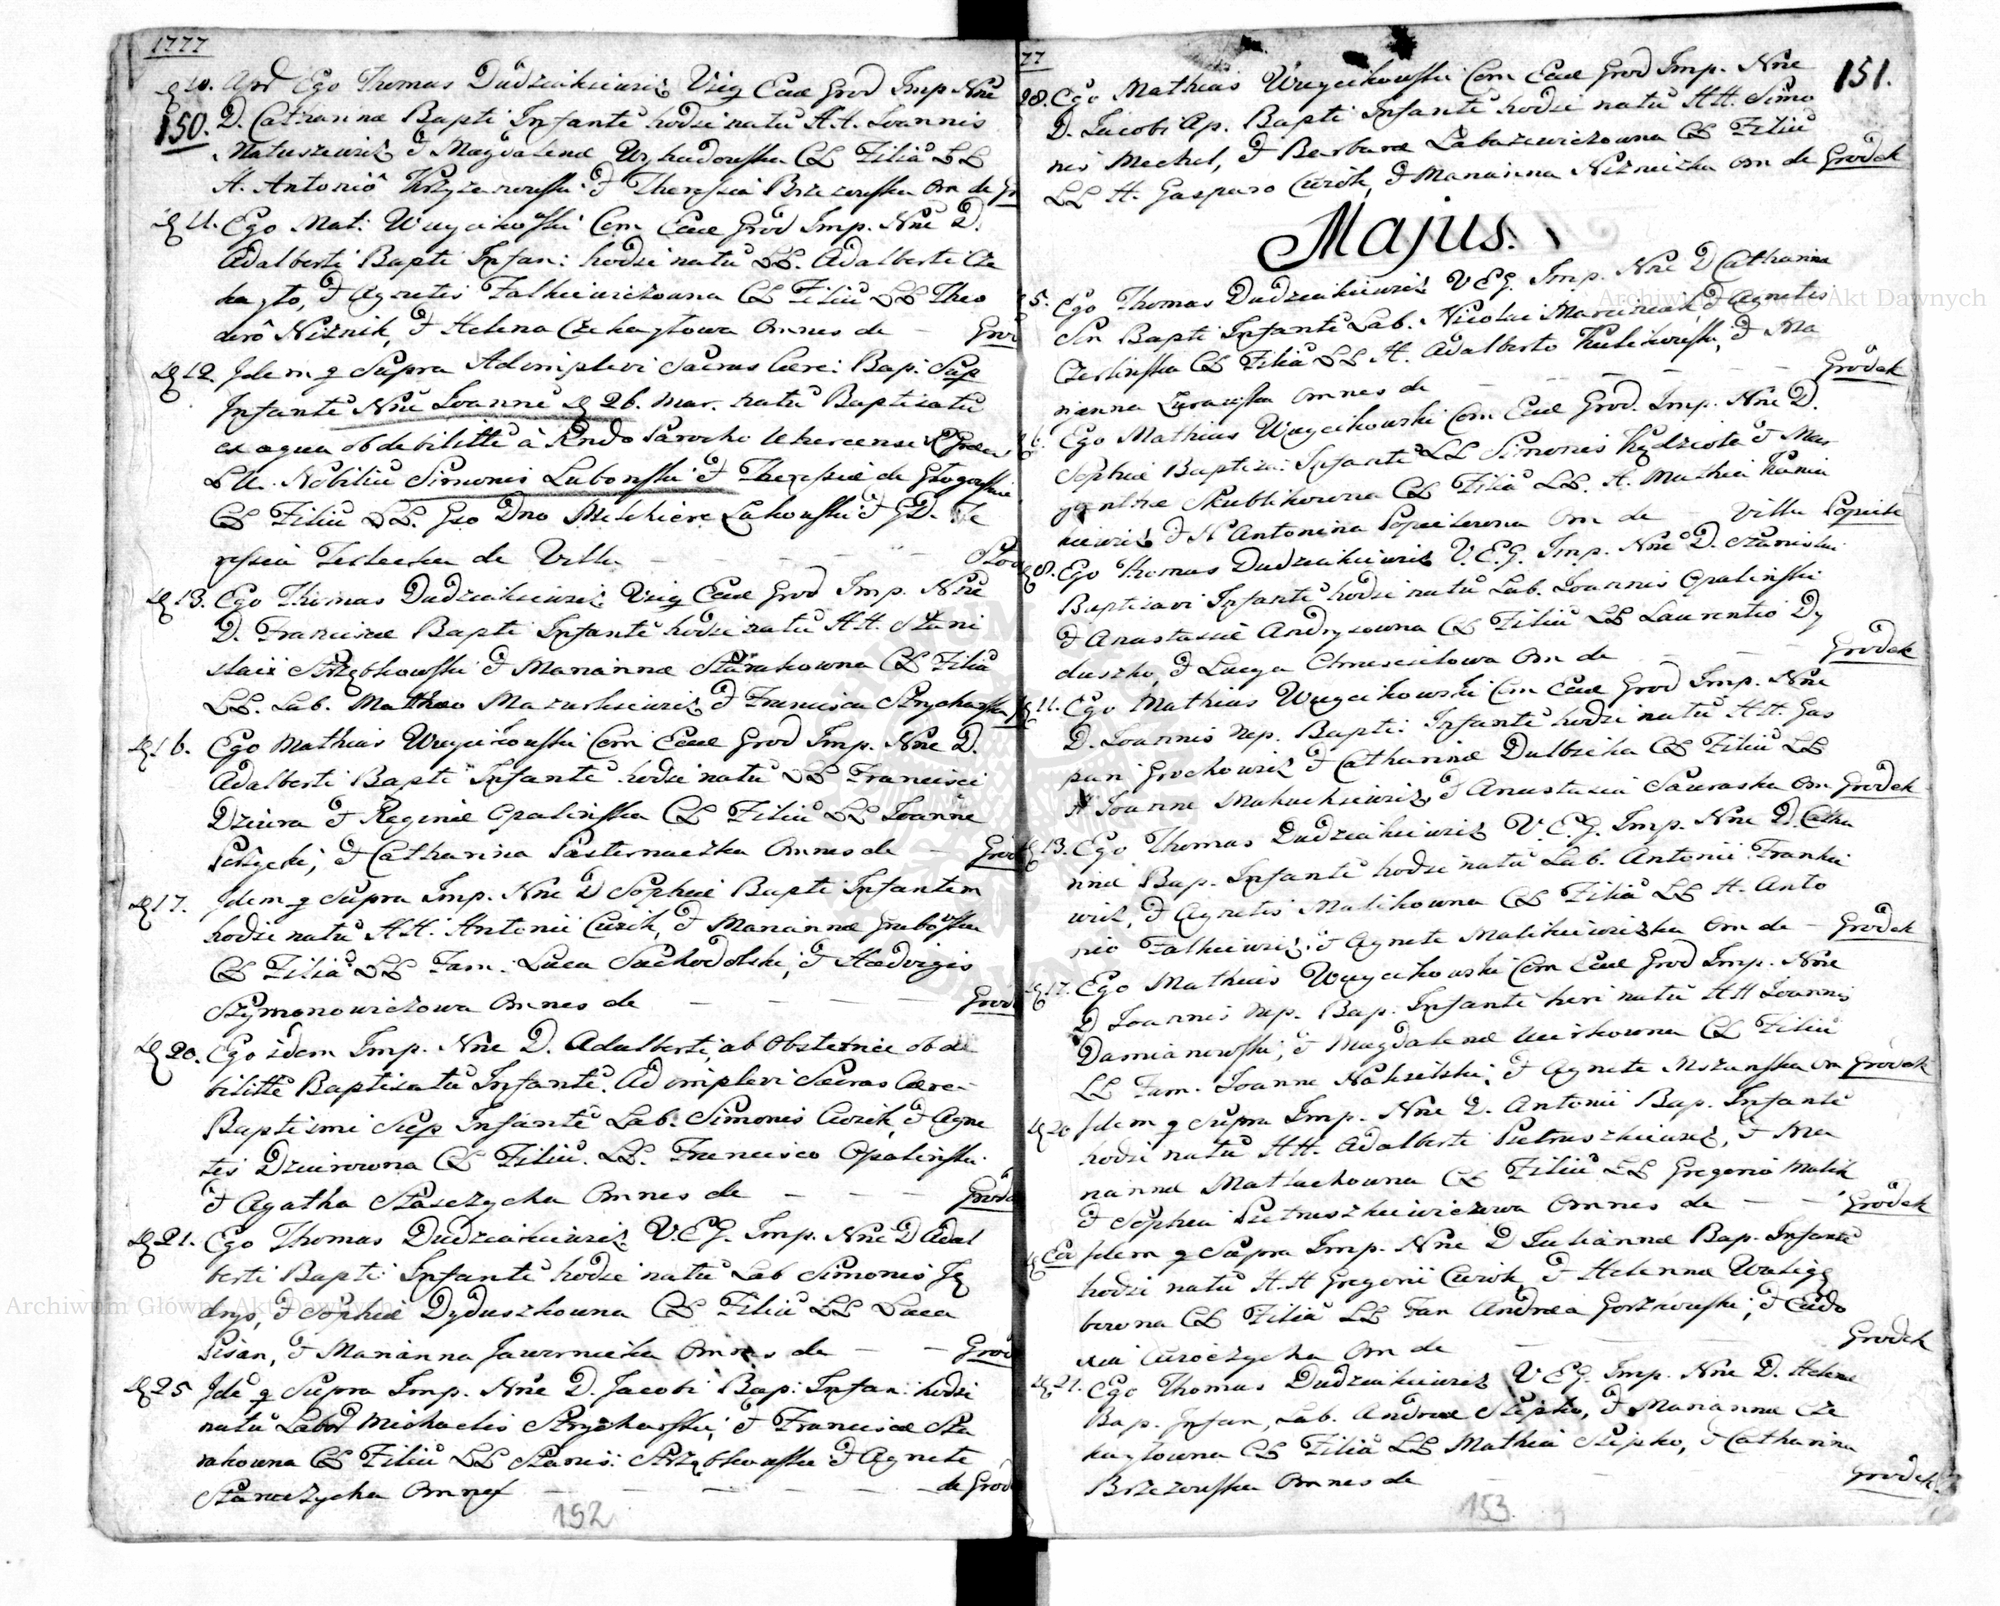 1777
150.
d 10. Apr Ego Thomas Dudziakiewicz Vsig Ecae Grod Imp Nne
D. Catharinæ Bapti Infantē hodie natū HH. Joannis
Matuszewicz & Magdalenæ Wyhadowska CL Filiā LL
H. Antoniō Krzyżanowski & Theressia Brzezowska Om de Gr
d 11. Ego Mat: Wuycikowski Com Ecae Grod Imp. Nne D.
Adalberti Bapti Infan: hodie natū LL. Adalberti Cze
kayło, & Agnetis Falkiewiczowna CL Filiū LL Theo
dorō Niżnik, & Helena Czekayłowa Omnes de — Grod
d 12 Idem q Supra Adimplevi Sacras Cære: Bap: Sup
Infantē Nne Joannē d 26. Mar. natū Baptisatū
ex aqua ob debilitē à Rndo Parocho Uherecensi R Græci
LU. Nobiliū Simonis Lubowski & Theressiæ de Głogowskie
CL Filiū LL. Gso Dno Melchiore Łakowski & GD. Te
ressia Terlecka de Villa — — — —
d 13. Ego Thomas Dudziakiewicz Vsig Ecae Grod Imp. Nne
D. Franciscæ Bapti Infantē hodie natū HH. Stani
slaii Strzębkowski & Mariannæ Starakowna CL Filiā
LL. Lab. Matheo Mazurkiewicz & Francisca Strycharska
d 16. Ego Mathias Wuycikowski Com Ecae Grod Imp. Nne D.
Adalberti Bapti Infantē hodie natū LL Francisci
Dziura & Reginæ Opalinska CL Filiū LL Joanne
& Catharina Pasternaczka Omnes de — Grod
d 17. Idem q Supra Imp. Nne D Sophiæ Bapti Infantem
hodie natū HH. Antonii Curik, & Mariannæ Grabowska
CL Filiā LL Fam. Luca Suchodolski, & Hedvigis
Szymonowiczowa Omnes de — — — — Grod
d 20. Ego idem Imp. Nne D. Adalberti, ab Obstetrice ob de
bilitē Baptisatū Infantē. Adimplevi Sacras Cære-
Baptismi Sup Infantē Lab. Simonis Curik, & Agne
tis Dziurowna CL Filiū. LL. Francisco Opalinski.
& Agatha Stasczycha Omnes de — — — Grode
d 21. Ego Thomas Dudziakiewicz V.EG. Imp. Nne D Adal
berti Bapti Infantē hodie natū Lab Simonis Ję
drys, & Sophiæ Dyduszkowna CL Filiū LL Luca
Pisan, & Marianna Jawornicka Omnes de — — Grod
d 25 Idē q Supra Imp. Nne D. Jacobi Bap: Infan: hodie
natū Labor Michaelis Strycharski, & Franciscæ Sta
rakowna CL Filiū LL Stanis: Strzębkowski & Agnete
Starczycha Omnes — — — — — de Grod
152
77
151.
28. Ego Mathias Wuycikowski Com Ecae Grod Imp. Nne
D. Jacobi Ap. Bapti Infantē hodie natū HH. Simo
nis Mechel, & Barbaræ Labaziewiczowna CL Filiū
LL H. Gasparo Curik, & Marianna Niżniczka om de Grodek
Majus.
5. Ego Thomas Dudziakiewicz V.EG. Imp. Nne D Catharinæ
Sen Bapti Infantē Lab. Nicolai Marciniak, & Agnetis
Czerlinska CL Filiā LL H. Adalberto Kulikowski, & Ma
rianna Żurawska Omnes de — — — — — Grodek
6. Ego Mathias Wuycikowski Com Ecae Grod. Imp. Nne D.
Sophiæ Baptisa: Infantē LL Simonis Kędziota & Mar
garithæ Skublikowna CL Filiā LL. H. Mathia Kania
kiewicz & H Antonina Popielowna Om de — Villa Popiele
d 8. Ego Thomas Dudziakiewicz V.E.G. Imp. Nne D. Stanislai
Baptisavi Infantē hodie natū Lab. Joannis Opalinski
& Anastasiæ Andrysowna CL Filiū LL Laurentio Dy
duszko, & Lucya Chmielilowa Om de — — — Grodek
d 11. Ego Mathias Wuycikowski Com Ecae Grod Imp. Nne
D. Joannis Nep. Bapti: Infantē hodie natū HH. Gas
pari Grochowicz & Catharinæ Dulbzika CL Filiū LL
H Joanne Makuchiewicz, & Anastasia Sauraska Om Grodek
13. Ego Thomas Dudziakiewicz V.E.G. Imp. Nne D. Catha
rinæ Bap. Infantē hodie natū Lab. Antonii Frankie
wicz, & Agnetis Malikowna CL Filiā LL H. Anto
nio Falkiewicz & Agnete Malikiewiczka Om de — Grodek
d 17. Ego Mathias Wuycikowski Com Ecae Grod Imp. Nne
D Joannis Nep. Bap. Infantē heri natū HH Joannis
Damianowski, & Magdalenæ Curikowna CL Filiū
LL Fam. Joanne Nahulski, & Agnete Mszanska Om Grodek
d 20 Idem q Supra Imp. Nne D. Antonii Bap. Infantē
hodie natū HH. Adalberti Pietruszkiewicz, & Ma
riannæ Matlachowna CL Filiū LL Gregorio Malik
& Sophia Pietruszkiewiczowa Omnes de — — Grodek
d Ea Idem q Supra Imp. Nne D Juliannæ Bap. Infantē
hodie natū H.H Gregorii Curik, & Helennæ Walig
borowna CL Filiā LL Fam Andrea Gorzkowski, & Eudo
xia Curoczycha Om de — — — Grodek
d 21. Ego Thomas Dudziakiewicz V EG. Imp. Nne D. Helenæ
Bap. Infan, Lab. Andreæ Stepko, & Mariannæ Cze
kayłowna CL Filiā LL Mathia Stepko, & Catharina
Brzezowska Omnes de — — — Grodek
153
Archiwum Główne Akt Dawnych
Archiwum Główne Akt Dawnych